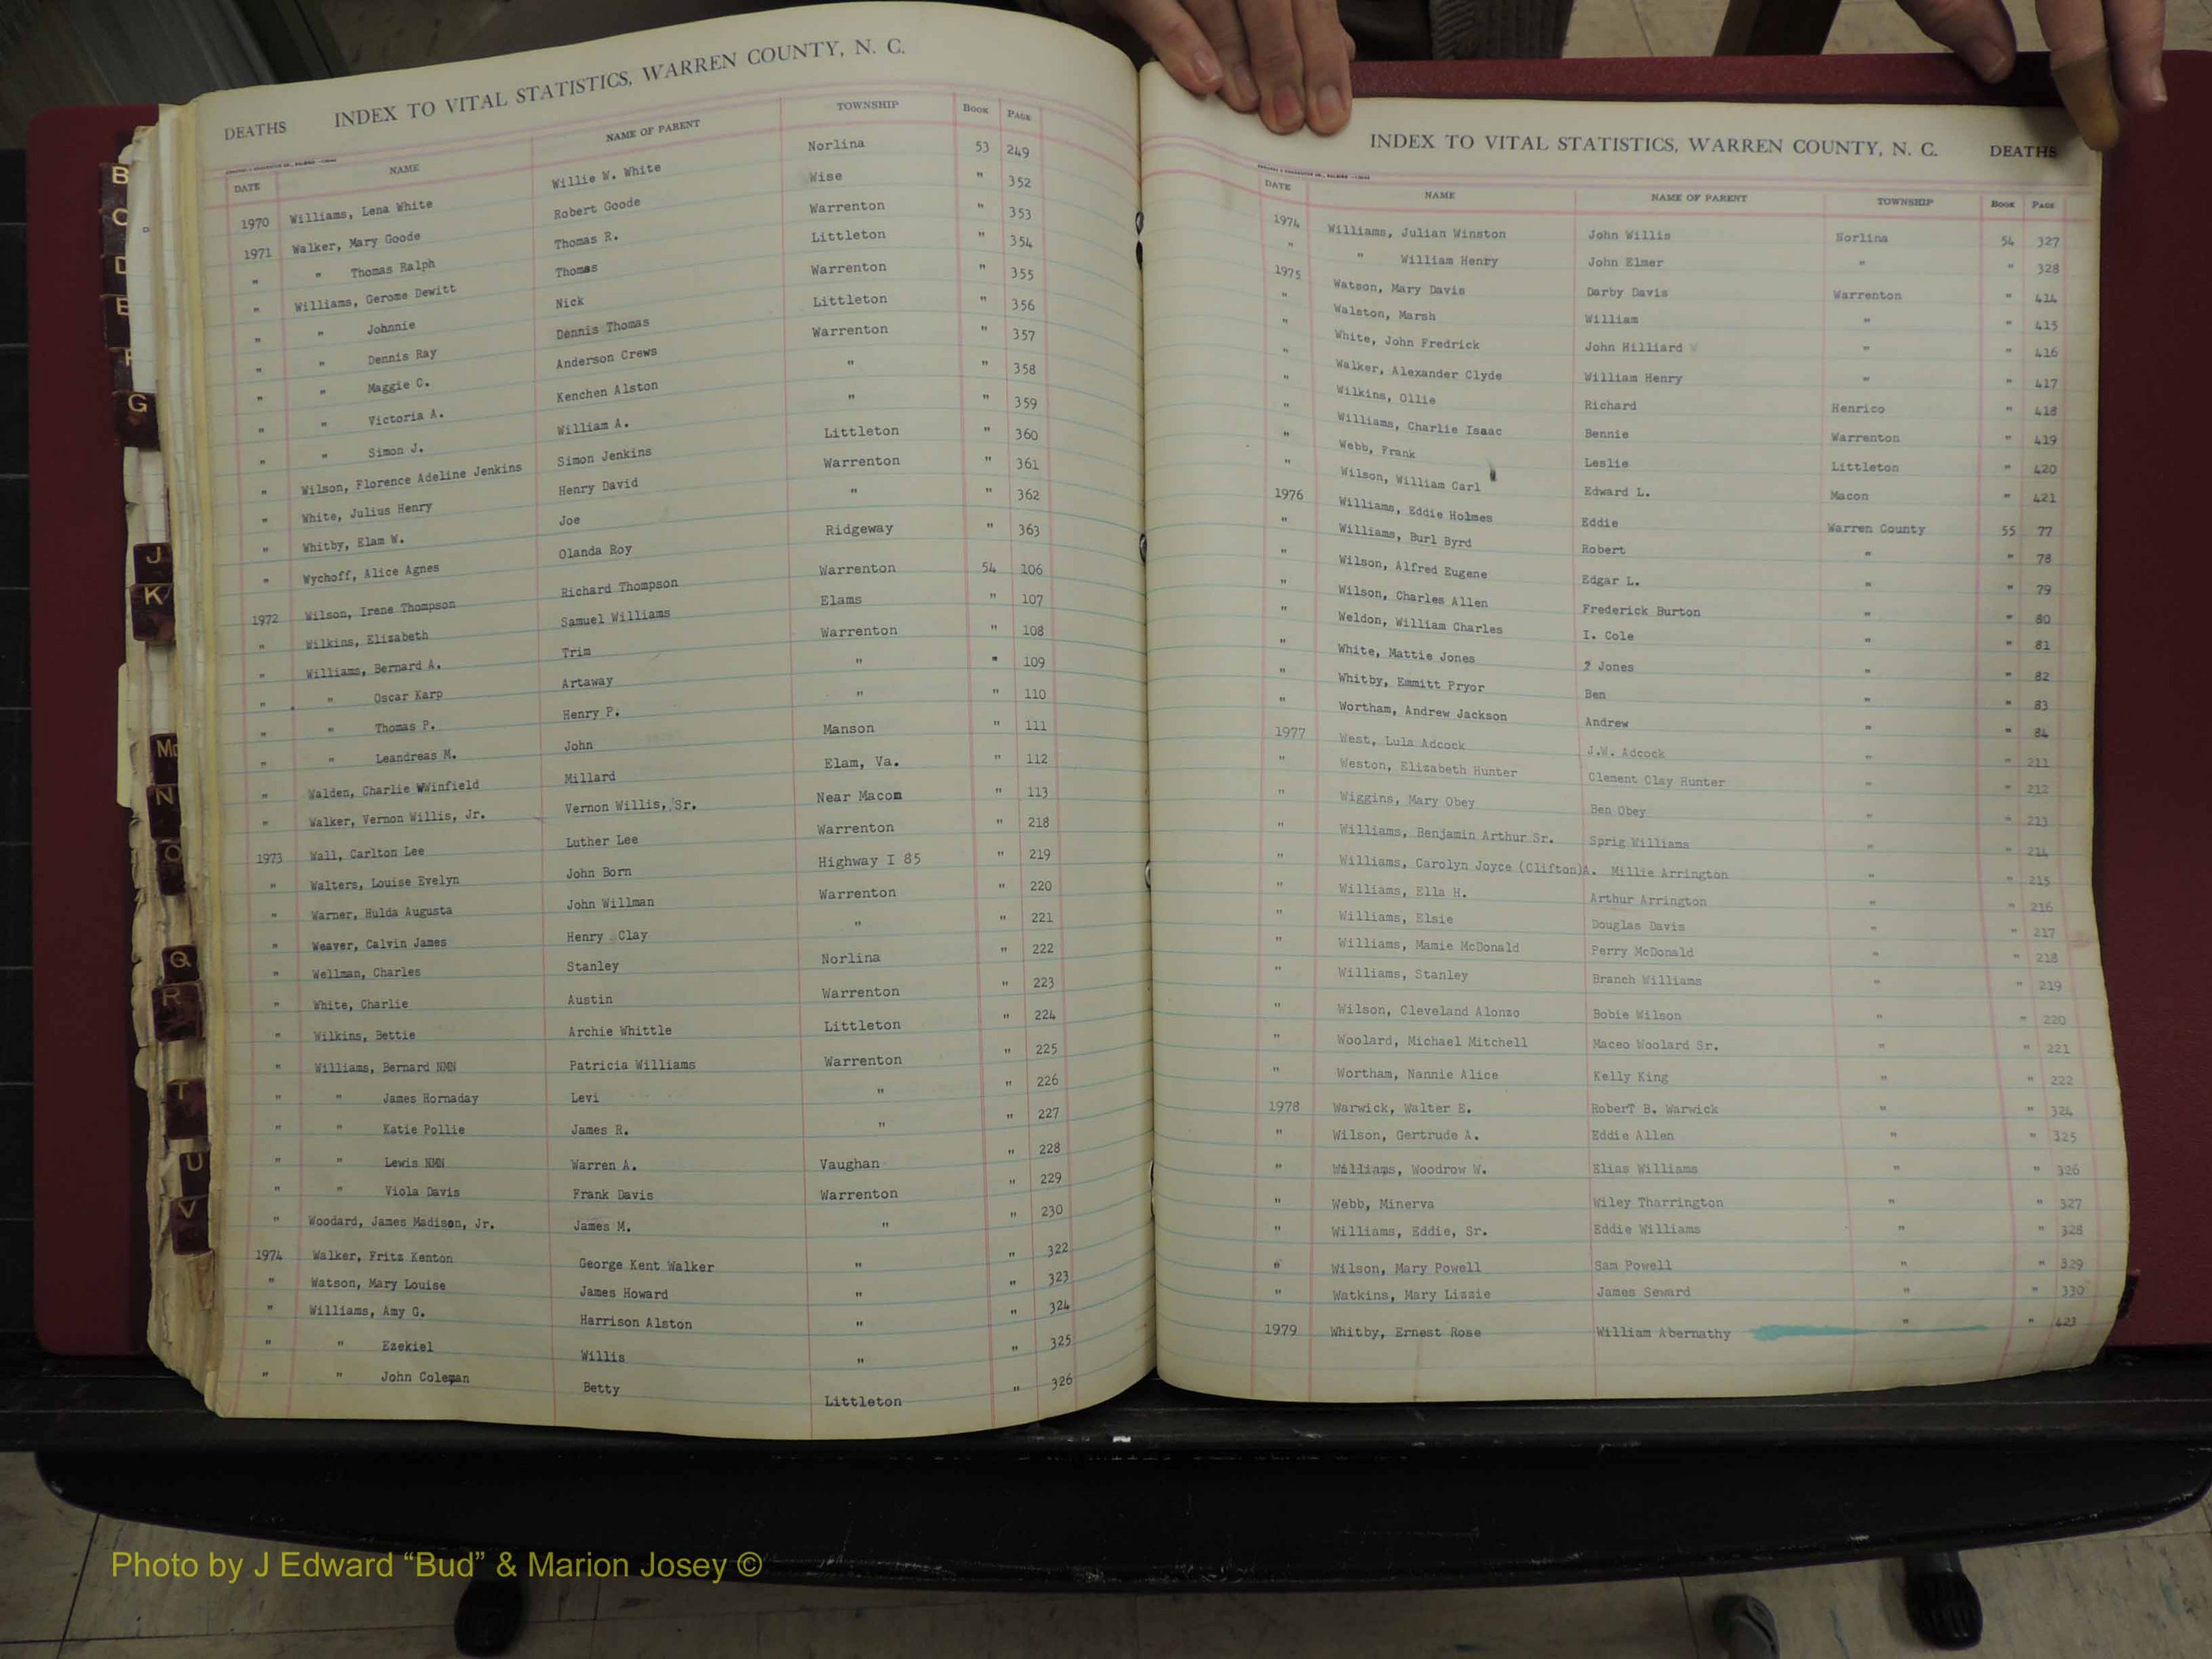 DEATHS INDEX TO VITAL STATISTICS, WARREN COUNTY, N. C.
DATE NAME NAME OF PARENT TOWNSHIP BOOK PAGE
1970 Williams, Lena White Willie W. White Norlina 53 249
1971 Walker, Mary Goode Robert Goode Wise " 352
" " Thomas Ralph Thomas R. Warrenton " 353
" Williams, Gerome Dewitt Thomas Littleton " 354
" " Johnnie Nick Warrenton " 355
" " Dennis Ray Dennis Thomas Littleton " 356
" " Maggie C. Anderson Crews Warrenton " 357
" " Victoria A. Kenchen Alston " " 358
" " Simon J. William A. " " 359
" Wilson, Florence Adeline Jenkins Simon Jenkins Littleton " 360
" White, Julius Henry Henry David Warrenton " 361
" Whitby, Elam W. Joe " " 362
" Wychoff, Alice Agnes Olanda Roy Ridgeway " 363
1972 Wilson, Irene Thompson Richard Thompson Warrenton 54 106
" Wilkins, Elizabeth Samuel Williams Elams " 107
" Williams, Bernard A. Trim Warrenton " 108
" " Oscar Karp Artaway " " 109
" " Thomas P. Henry P. " " 110
" " Leandreas M. John Manson " 111
" Walden, Charlie WWinfield Millard Elam, Va. " 112
" Walker, Vernon Willis, Jr. Vernon Willis, Sr. Near Macon " 113
1973 Wall, Carlton Lee Luther Lee Warrenton " 218
" Walters, Louise Evelyn John Born Highway I 85 " 219
" Warner, Hulda Augusta John Willman Warrenton " 220
" Weaver, Calvin James Henry Clay " " 221
" Wellman, Charles Stanley Norlina " 222
" White, Charlie Austin Warrenton " 223
" Wilkins, Bettie Archie Whittle Littleton " 224
" Williams, Bernard NMN Patricia Williams Warrenton " 225
" " James Hornaday Levi " " 226
" " Katie Pollie James R. " " 227
" " Lewis NMN Warren A. Vaughan " 228
" " Viola Davis Frank Davis Warrenton " 229
" Woodard, James Madison, Jr. James M. " " 230
1974 Walker, Fritz Kenton George Kent Walker " " 322
" Watson, Mary Louise James Howard " " 323
" Williams, Amy G. Harrison Alston " " 324
" " Ezekiel Willis " " 325
" " John Coleman Betty Littleton " 326
INDEX TO VITAL STATISTICS, WARREN COUNTY, N. C. DEATHS
DATE NAME NAME OF PARENT TOWNSHIP BOOK PAGE
1974 Williams, Julian Winston John Willis Norlina 54 327
" " William Henry John Elmer " " 328
1975 Watson, Mary Davis Darby Davis Warrenton " 414
" Walston, Marsh William " " 415
" White, John Fredrick John Hilliard " " 416
" Walker, Alexander Clyde William Henry " " 417
" Wilkins, Ollie Richard Henrico " 418
" Williams, Charlie Isaac Bennie Warrenton " 419
" Webb, Frank Leslie Littleton " 420
" Wilson, William Carl Edward L. Macon " 421
1976 Williams, Eddie Holmes Eddie Warren County 55 77
" Williams, Burl Byrd Robert " " 78
" Wilson, Alfred Eugene Edgar L. " " 79
" Wilson, Charles Allen Frederick Burton " " 80
" Weldon, William Charles I. Cole " " 81
" White, Mattie Jones ? Jones " " 82
" Whitby, Emmitt Pryor Ben " " 83
" Wortham, Andrew Jackson Andrew " " 84
1977 West, Lula Adcock J.W. Adcock " " 211
" Weston, Elizabeth Hunter Clement Clay Hunter " " 212
" Wiggins, Mary Obey Ben Obey " " 213
" Williams, Benjamin Arthur Sr. Sprig Williams " " 214
" Williams, Carolyn Joyce (Clifton)A. Millie Arrington " " 215
" Williams, Ella H. Arthur Arrington " " 216
" Williams, Elsie Douglas Davis " " 217
" Williams, Mamie McDonald Perry McDonald " " 218
" Williams, Stanley Branch Williams " " 219
" Wilson, Cleveland Alonzo Bobie Wilson " " 220
" Woolard, Michael Mitchell Maceo Woolard Sr. " " 221
" Wortham, Nannie Alice Kelly King " " 222
1978 Warwick, Walter E. RoberT B. Warwick " " 324
" Wilson, Gertrude A. Eddie Allen " " 325
" Williams, Woodrow W. Elias Williams " " 326
" Webb, Minerva Wiley Tharrington " " 327
" Williams, Eddie, Sr. Eddie Williams " " 328
" Wilson, Mary Powell Sam Powell " " 329
" Watkins, Mary Lizzie James Seward " " 330
1979 Whitby, Ernest Rose William Abernathy " " 423
B
C
D
E
F
G
J
K
Mc
N
O
Q
R
T
U
V
Photo by J Edward “Bud” & Marion Josey ©